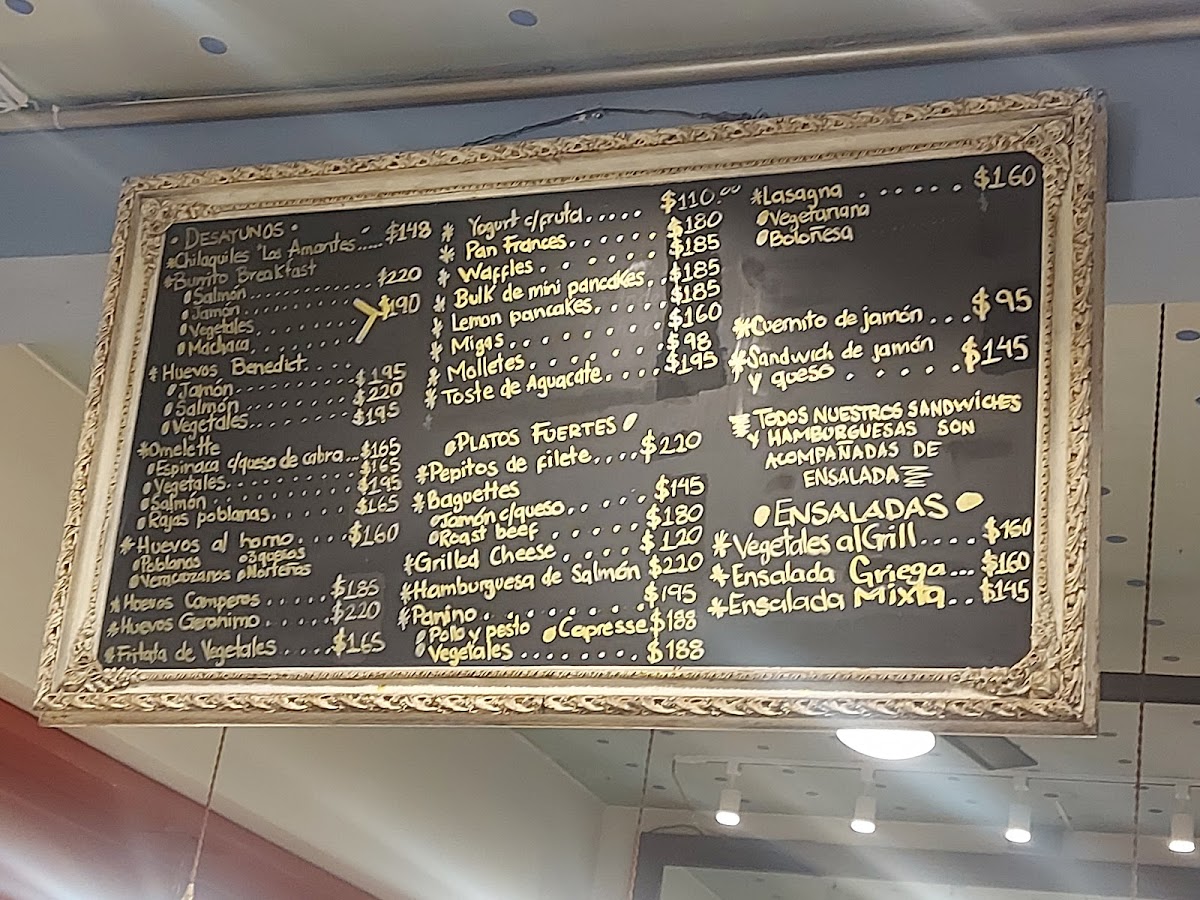 • DESAYUNOS •
*Chilaquiles "Los Amantes..... $148
*Burrito Breakfast
Salmón............ $220
Jamón
Vegetales......... $190
Machaca.........
* Huevos Benedict....
Jamón........... $195
Salmón.......... $220
Vegetales........ $195
*Omelette
Espinaca c/queso de cabra... $165
Vegetales............ $165
Salmón............ $195
Rajas poblanas........ $165
*Huevos al horno.... $160
Poblanos
Veracruzanos Norteños
* Huevos Camperos..... $185
*Huevos Geronimo..... $220
*Fritata de Vegetales.... $165
* Yogurt c/fruta..... $110.00
* Pan Frances...... $180
* Waffles...... $185
* Bulk de mini pancakes.. $185
* Lemon pancakes...... $185
* Migas......... $160
* Molletes....... $98
* Toste de Aguacate..... $195
PLATOS FUERTES
*Pepitos de filete.... $220
*Baguettes
Jamón c/queso...... $145
Roast beef...... $180
*Grilled Cheese..... $120
*Hamburguesa de Salmón $220
*Panino......... $195
Pollo y pesto Capresse $188
Vegetales........ $188
*Lasagna...... $160
Vegetariana
Boloñesa
*Cuernito de jamón... $95
*Sandwich de jamón
y queso..... $145
TODOS NUESTROS SANDWICHES
Y HAMBURGUESAS SON
ACOMPAÑADAS DE
ENSALADA
ENSALADAS
*Vegetales al Grill.... $160
*Ensalada Griega... $160
*Ensalada Mixta.. $145